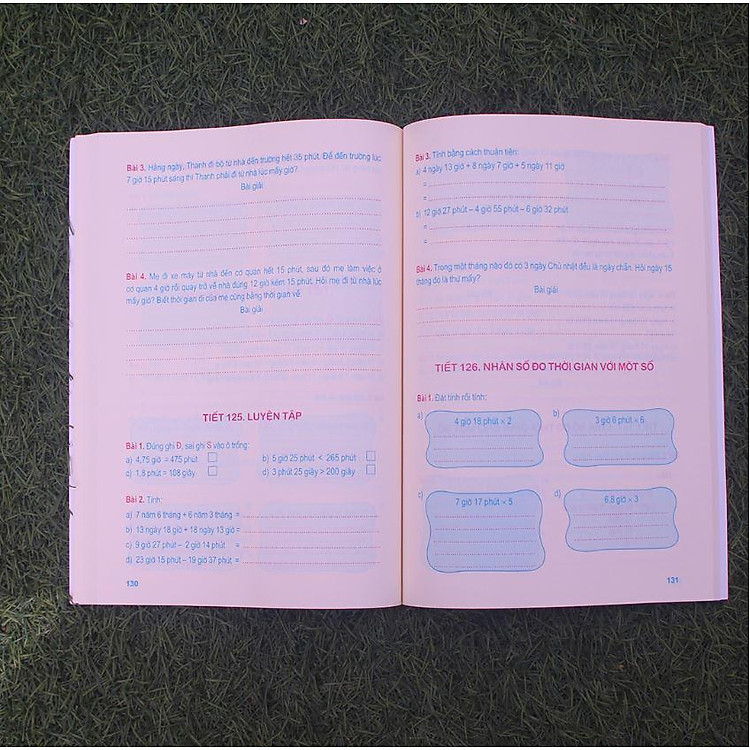 Bài 3. Hằng ngày, Thanh đi bộ từ nhà đến trường hết 35 phút. Để đến trường lúc
7 giờ 15 phút sáng thì Thanh phải đi từ nhà lúc mấy giờ?
Bài giải
Bài 4. Mẹ đi xe máy từ nhà đến cơ quan hết 15 phút, sau đó mẹ làm việc ở
cơ quan 4 giờ rồi quay trở về nhà đúng 12 giờ kém 15 phút. Hỏi mẹ đi từ nhà lúc
mấy giờ? Biết thời gian đi của mẹ cũng bằng thời gian về.
Bài giải
TIẾT 125. LUYỆN TẬP
Bài 1. Đúng ghi Đ, sai ghi S vào ô trống:
a) 4,75 giờ = 475 phút
b) 5 giờ 25 phút < 265 phút
c) 1,8 phút = 108 giây
d) 3 phút 25 giây > 200 giây
Bài 2. Tính:
a) 7 năm 6 tháng + 6 năm 3 tháng =
b) 13 ngày 18 giờ + 18 ngày 13 giờ =
c) 9 giờ 27 phút – 2 giờ 14 phút =
d) 23 giờ 15 phút – 19 giờ 37 phút =
130
Bài 3. Tính bằng cách thuận tiện:
a) 4 ngày 13 giờ + 8 ngày 7 giờ + 5 ngày 11 giờ
=
=
b) 12 giờ 27 phút – 4 giờ 55 phút – 6 giờ 32 phút
=
=
Bài 4. Trong một tháng nào đó có 3 ngày Chủ nhật đều là ngày chẵn. Hỏi ngày 15
tháng đó là thứ mấy?
Bài giải
TIẾT 126. NHÂN SỐ ĐO THỜI GIAN VỚI MỘT SỐ
Bài 1. Đặt tính rồi tính:
a) 4 giờ 18 phút × 2
b) 3 giờ 6 phút × 6
c) 7 giờ 17 phút × 5
d) 6,8 giờ × 3
131